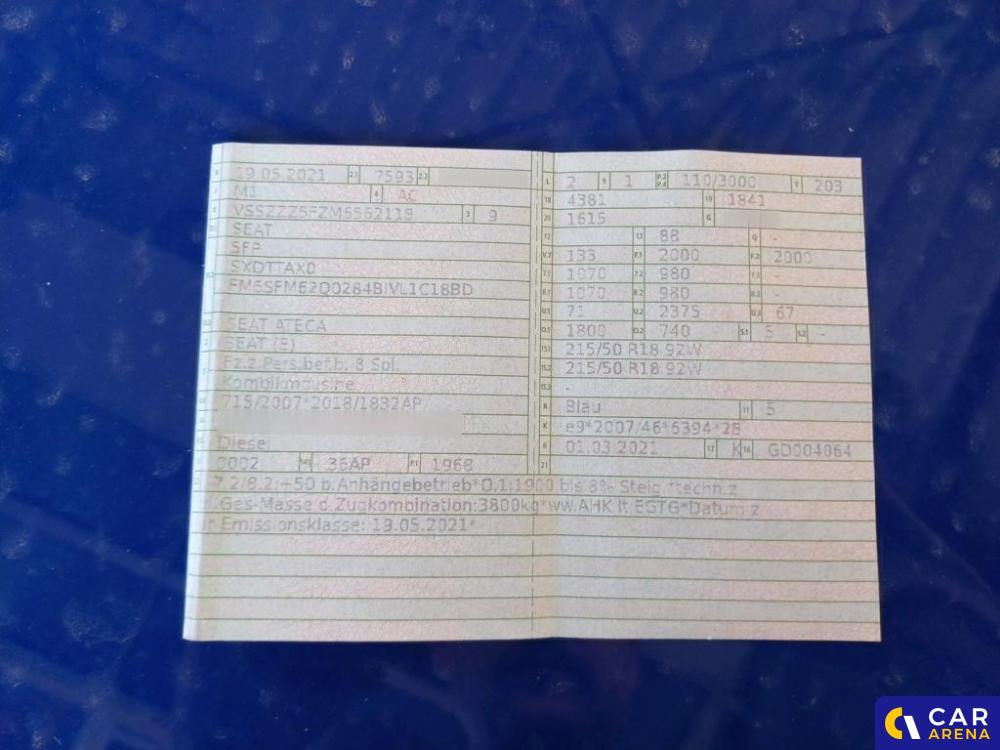 B 19.05.2021 2.1 7593 2.2
J M1 4 AC
E VSSZZZ5FZM6562118 3 9
SEAT
5FP
SXDTTAX0
FM6SFM62Q0284BIVL1C18BD
SEAT ATECA
SEAT (E)
Fz.z.Pers.bef.b. 8 Spl.
Kombilimousine
715/2007*2018/1832AP
Diesel
0002 14.1 36AP P.1 1968
L 2 9 1 P.2 P.4 110/3000 T 203
18 4381 19 1841
20 1615 G
12 13 88 Q -
V.7 133 F.1 2000 F.2 2000
7.1 1070 7.2 980 7.3 -
8.1 1070 8.2 980 8.3 -
U.1 71 U.2 2375 U.3 67
O.1 1800 O.2 740 S.1 5 S.2 -
15.1 215/50 R18 92W
15.2 215/50 R18 92W
15.3 -
R Blau 11 5
K e9*2007/46*6394*28
6 01.03.2021 17 K 16 GD004064
21
7.2/8.2:+50 b.Anhängebetrieb*O.1:1900 bis 8% Steig.*techn.z
.Ges-Masse d Zugkombination:3800kg*ww.AHK lt.EGTG*Datum z
ur Emissionsklasse: 19.05.2021*
CAR
ARENA